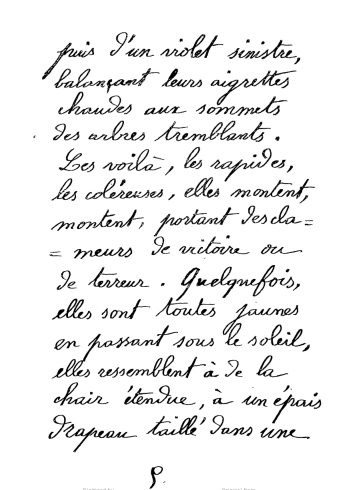 puis d'un violet sinistre,
balançant leurs aigrettes
chaudes aux sommets
des arbres tremblants.
Les voilà, les rapides,
les coléreuses, elles montent,
montent, portant des cla=
= meurs de victoire ou
de terreur. Quelquefois,
elles sont toutes jaunes
en passant sous le soleil,
elles ressemblent à de la
chair étendue, à un épais
drapeau taillé dans une